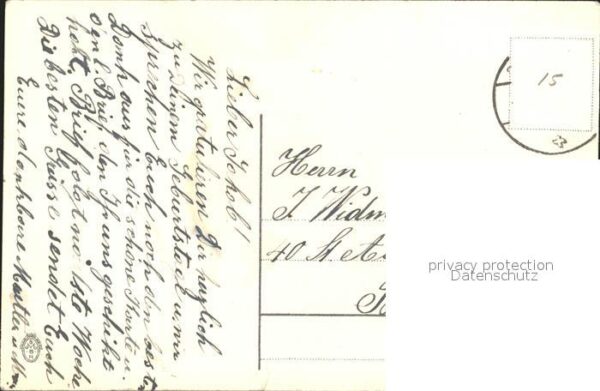 Lieber Jakob!
Wir gratulieren Dir herzlich
zu Deinem Geburtstet u. wir
sprechen Euch noch den best
Donk aus für die schöne Karte u.
den l. Brief den Ihr uns geschikt
hobt, Brief folgt no. lste Woche
Die besten Grüsse sendet Euch
Euere dankbare Mutter u.
Herrn
J. Widm
40 St A
15
privacy protection
Datenschutz